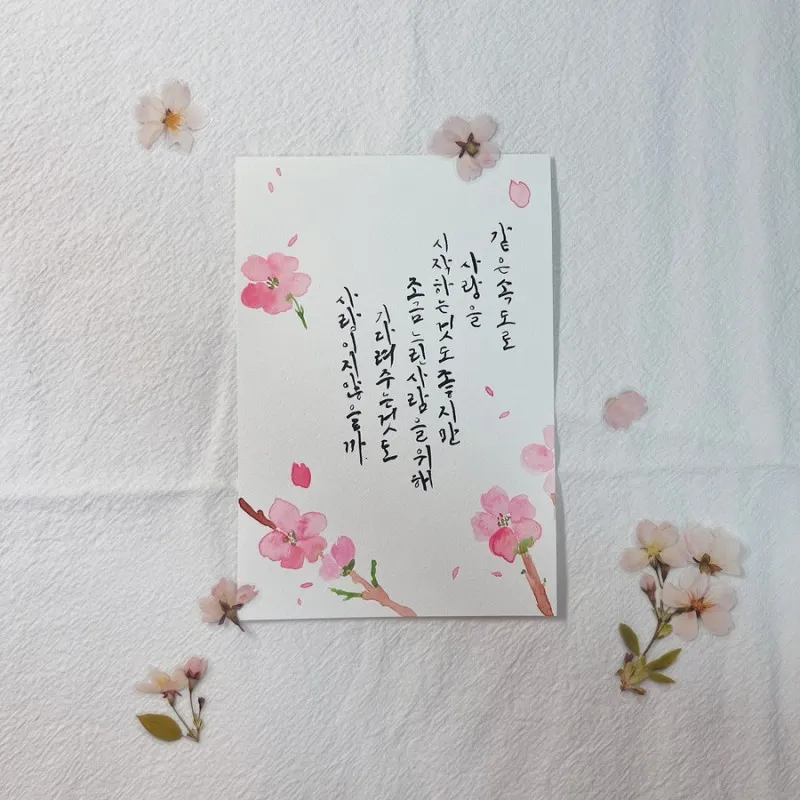 같은 속도로
사랑을
시작하는 것도 좋지만
조금 느린 사람을 위해
기다려 주는 것도
사랑이지 않을까